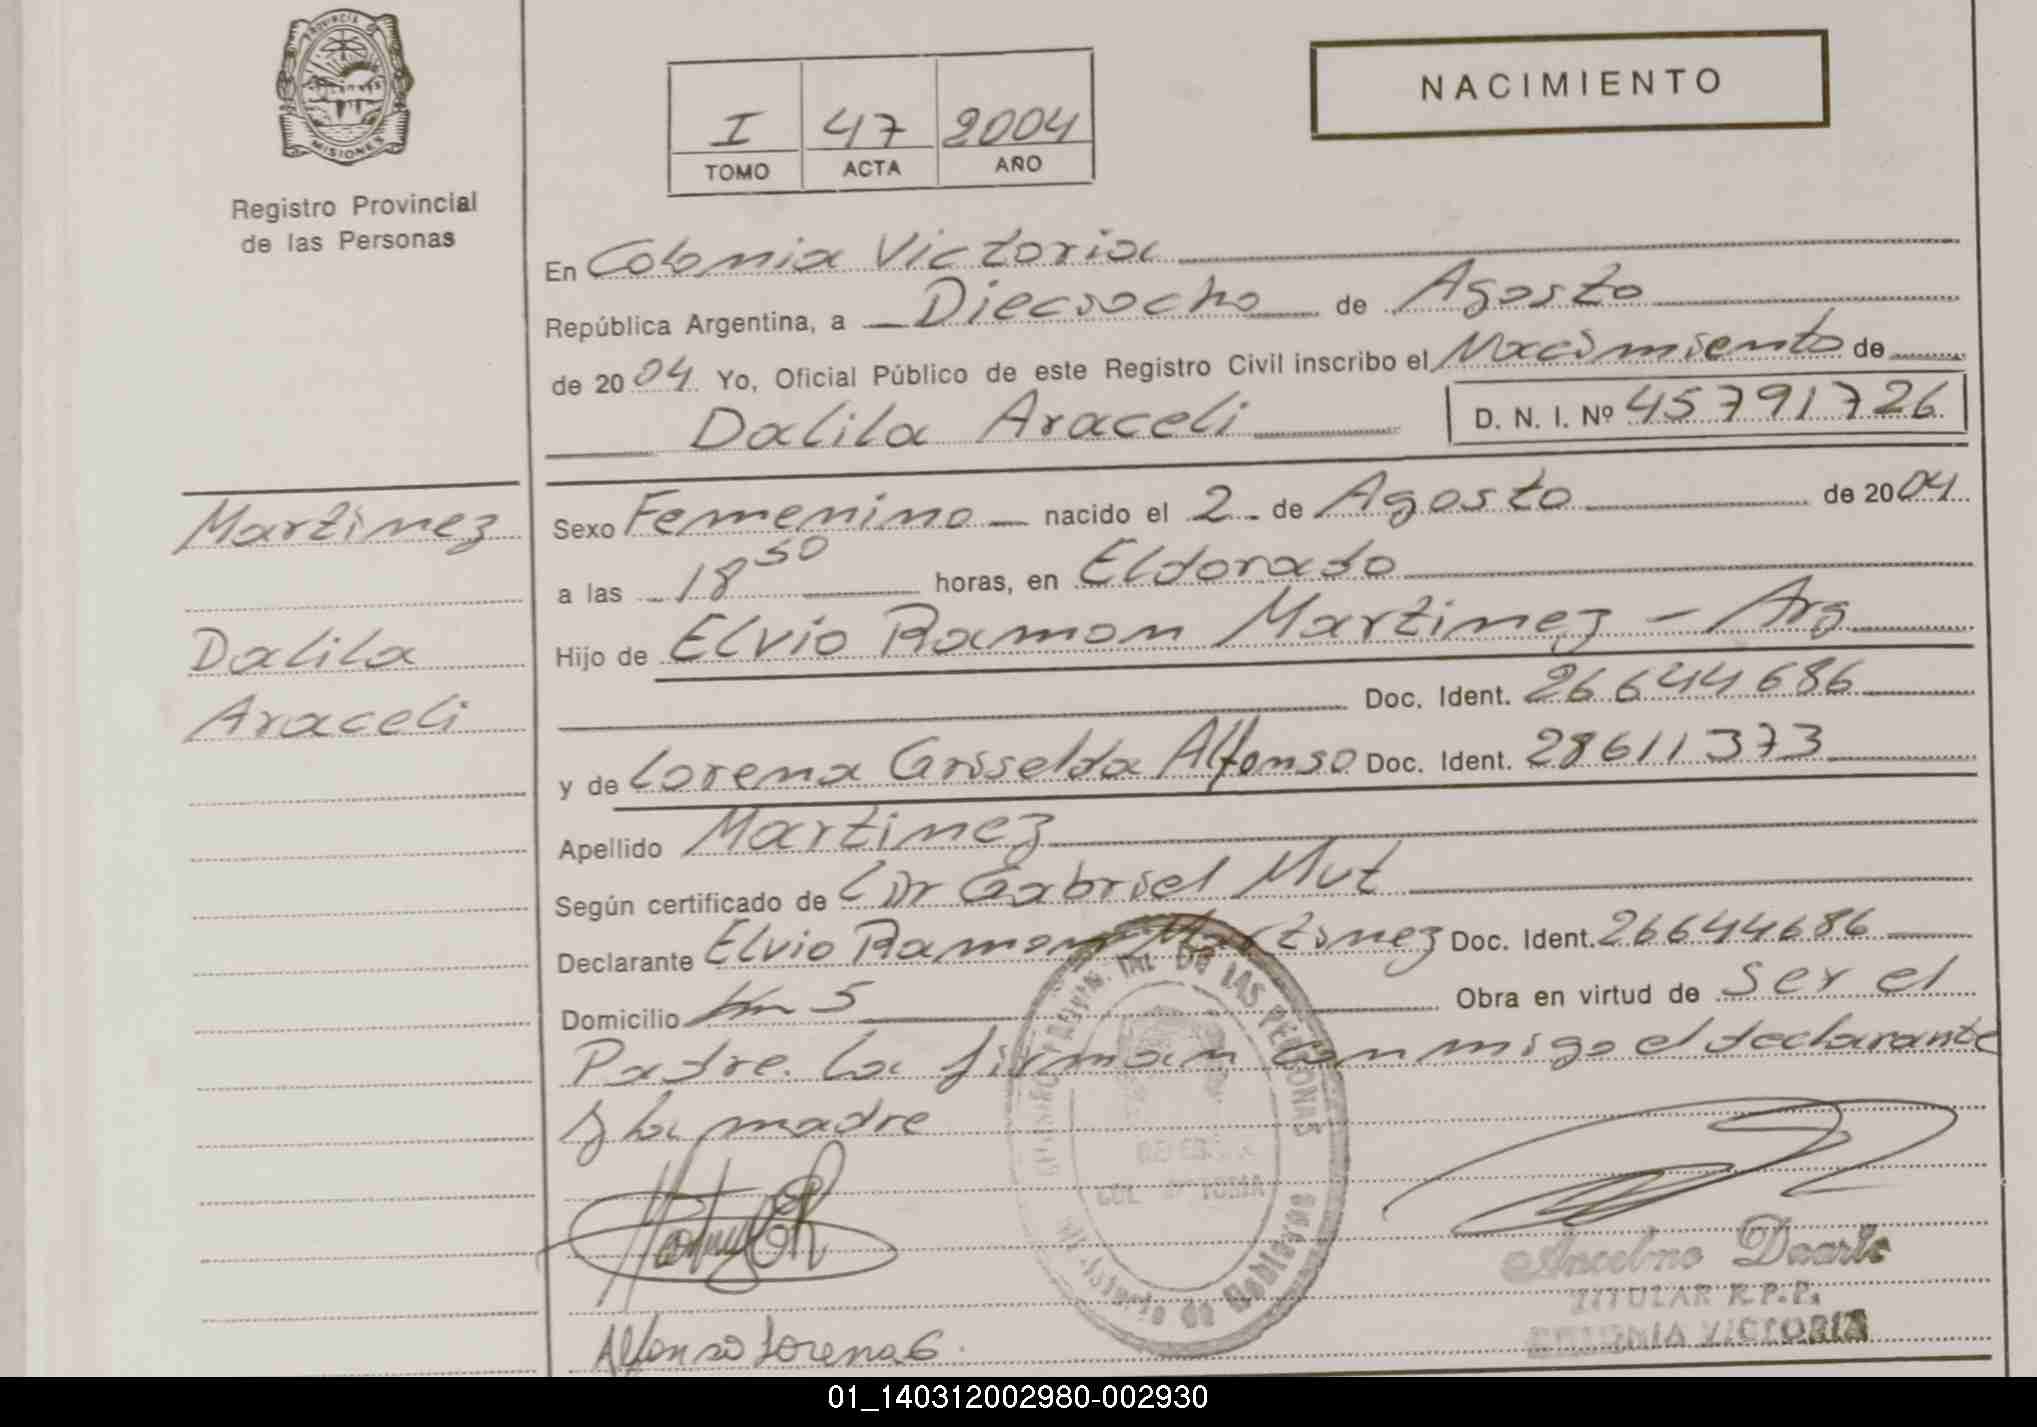 PROVINCIA D
MISIONES
Registro Provincial
de las Personas
I 47 2004
TOMO ACTA AÑO
NACIMIENTO
En Colonia Victoria
República Argentina, a Diecsocho de Agosto
de 2004 Yo, Oficial Público de este Registro Civil inscribo el Nacimiento de
Dalila Araceli D. N. I. Nº 45791726
Martinez
Dalila
Araceli
Sexo Femenino nacido el 2 de Agosto de 2004
a las 18 50 horas, en Eldorado
Hijo de Elvio Ramon Martinez - Arg
Doc. Ident. 26644686
y de Lorena Griselda Alfonso Doc. Ident. 28611373
Apellido Martinez
Según certificado de Dr Gabriel Mut
Declarante Elvio Ramon Martinez Doc. Ident. 26644686
Domicilio Km 5 Obra en virtud de ser el
Padre. La firman conmigo el declarante
y la madre
DE LAS PERSONAS
COL VICTORIA
Ministerio de Gobierno
Ancelmo Duarte
TITULAR R.P.P.
COLONIA VICTORIA
Alfonso Lorena G.
01_140312002980-002930